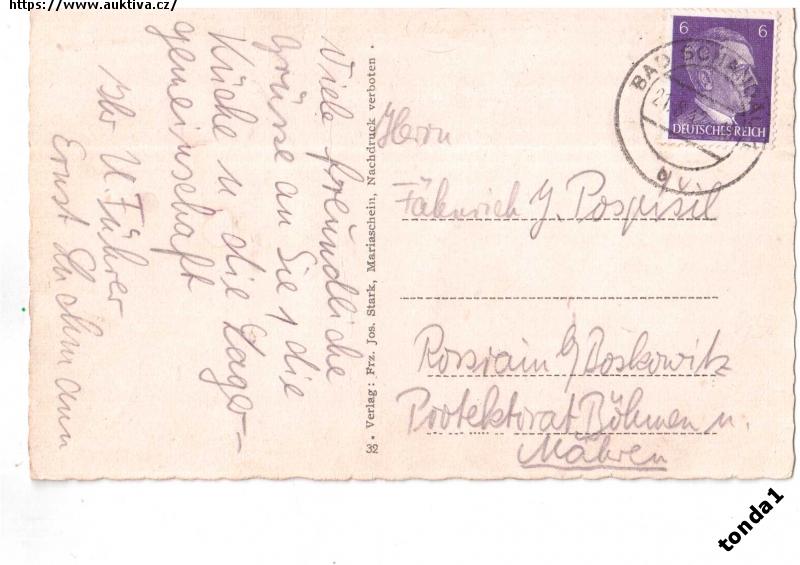 https://www.auktiva.cz/
Viele freundliche
Grüsse an Sie, die
Küche u die Lager-
gemeinschaft
Ihr U. Führer
Ernst
32 • Verlag: Frz. Jos. Stark, Mariaschein, Nachdruck verboten •
6 6
DEUTSCHES REICH
BAD SCHANDA
Herrn
Fähnrich J. Pospisil
Rossrain b/Boskowitz
Protektorat Böhmen u.
Mähren
tonda1